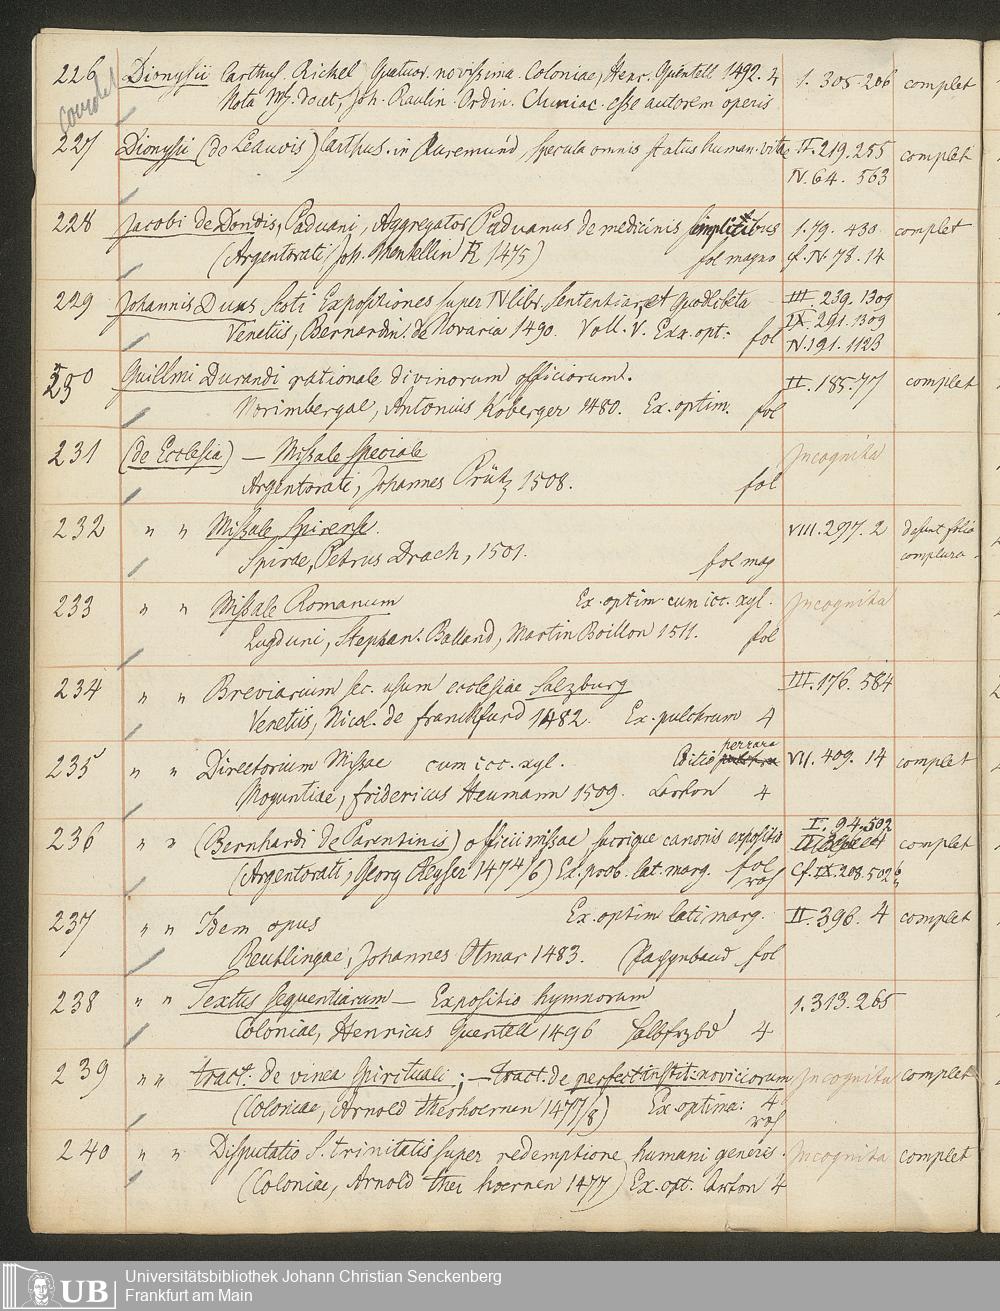 226 Dionysii Carthus. Rickel Quatuor novissima. Coloniae, Henr. Quentell 1492. 4 1. 305. 206 complet
Nota Mj. docet, Joh. Raulin Ordin. Cluniac. esse autorem operis
227 Dionysii (de Leauvis) Carthus. in Ruremund, specula omnis status human. vitae II. 219. 255 complet
IV. 64. 563
228 Jacobi de Dondis, Paduani, Aggregator Paduanus de medicinis simplicibus 1. 79. 430. complet
(Argentorati, Joh. Mentellin R 1475) fol magno cf. IV. 78. 14
229 Johannis Duns Scoti Expositiones super IV libr. Sententiar. et Quodlibeta III. 239. 1309
Venetiis, Bernardin. de Novaria 1490. Voll. V. Exx. opt. fol IX. 291. 1309
IV. 191. 1123
230 Guillmi Durandi rationale divinorum officiorum. II. 185. 77 complet
Norimbergae, Antonius Koberger 1480. Ex. optim. fol
231 (de Ecclesia) — Missale speciale Incognita
Argentorati, Johannes Prüß 1508. fol
232 " " Missale Spirense. VIII. 297. 2 desunt folia
Spirae, Petrus Drach, 1501. fol mag complura
233 " " Missale Romanum Ex. optim. cum icc. xyl. Incognita
Lugduni, Stephan. Balland, Martin Boillon 1511. fol
234 " " Breviarium sec. usum ecclesiae Salzburg III. 176. 584
Venetiis, Nicol. de franckfurd 1482. Ex. pulchrum 4
235 " " Directorium Missae cum icc. xyl. Editio perrara VII. 409. 14 complet
Moguntiae, fridericus Heumann 1509. Carton 4
236 " " (Bernhardi de Parentinis) officii missae sacrique canonis expositio I. 94. 502 complet
(Argentorati, Georg Reyser 1474/6) Ex. prob. lat. marg. fol Cf. IX. 208. 502 b
roh
237 " " Idem opus Ex. optim lati marg. II. 396. 4 complet
Reutlingae, Johannes Otmar 1483. Pappband fol
238 " " Textus sequentiarum — Expositio hymnorum 1. 313. 265
Coloniae, Henricus Quentell 1496 Halbfrzbd 4
239 " " tract. de vinea spirituali; — tract. de perfect. instit. noviciorum Incognita complet
(Coloniae, Arnold therhoernen 1477/8) Ex. optima: 4
roh
240 " " Disputatio S. trinitatis super redemptione humani generis. Incognita complet
(Coloniae, Arnold ther hoernen 1477) Ex. opt. Carton 4
UB Universitätsbibliothek Johann Christian Senckenberg
Frankfurt am Main